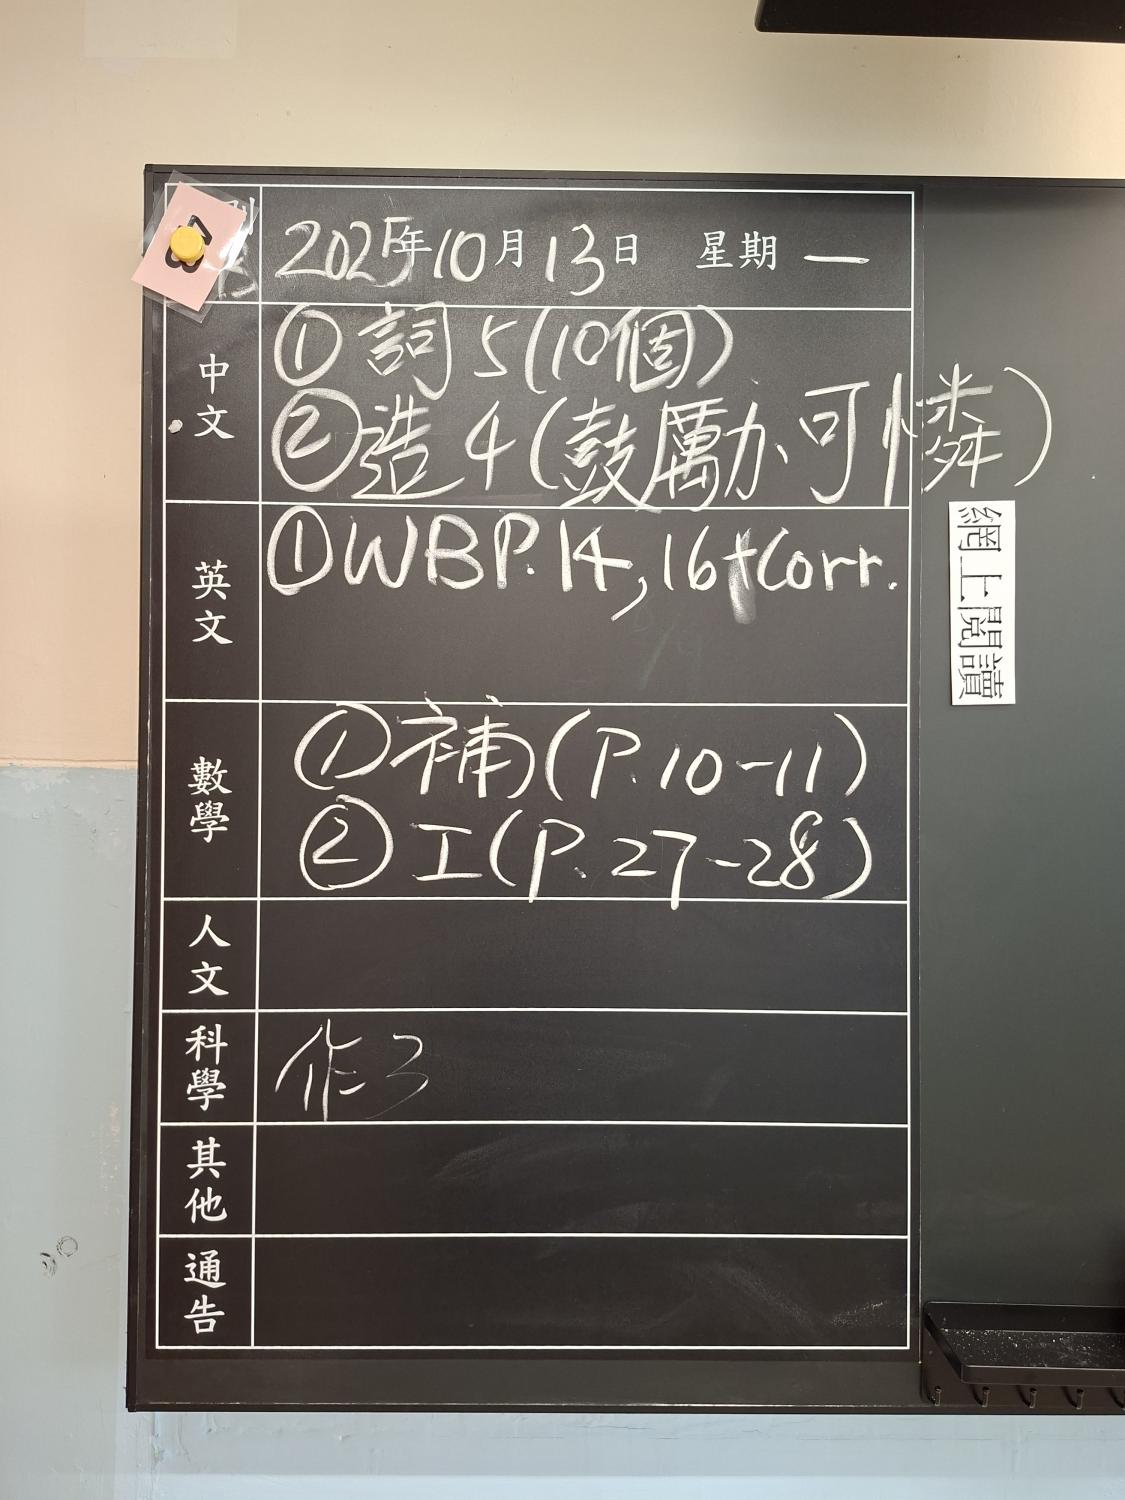 2025年10月13日 星期一
中文
①詞5(10個)
②造4(鼓勵、可憐)
英文
①WB P.14,16+Corr.
網上閱讀
數學
①補(P.10-11)
②工(P.27-28)
人文
科學
作3
其他
通告